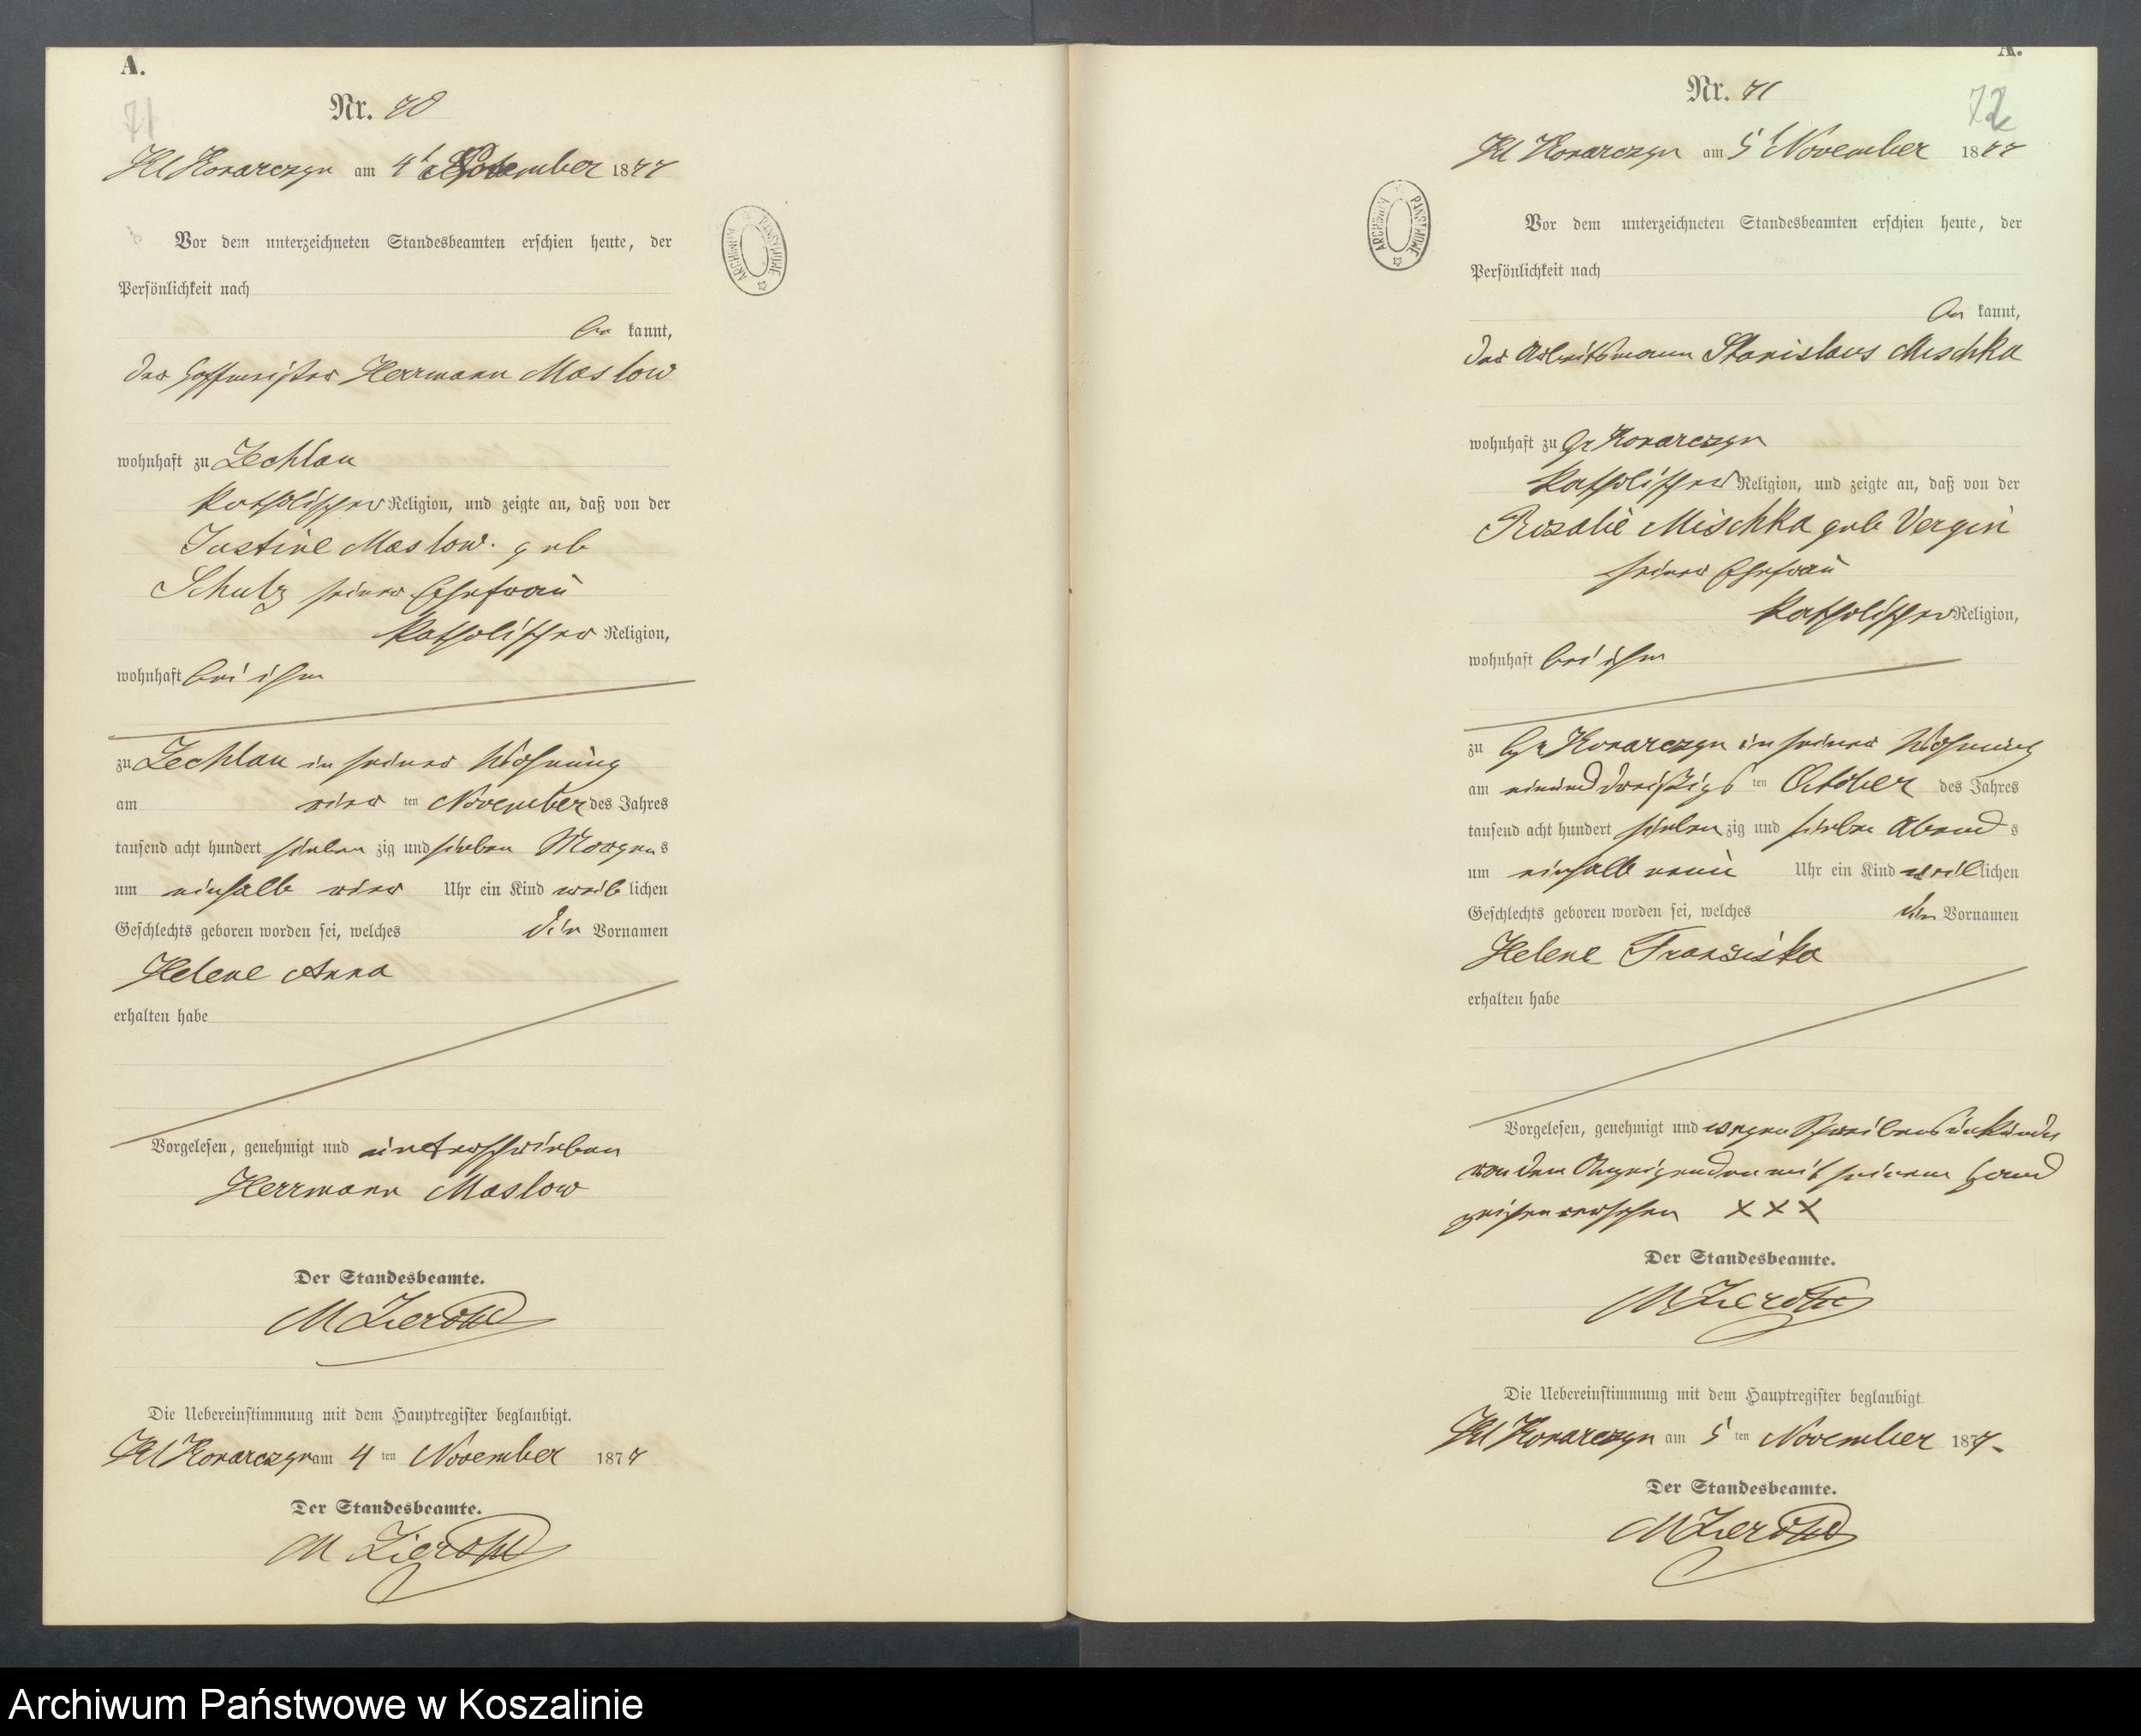 A.
71
Nr. 70
Kl Konarczyn am 4t November 1877
Vor dem unterzeichneten Standesbeamten erschien heute, der
Persönlichkeit nach
be kannt,
der Hoffmeister Herrmann Maslow
wohnhaft zu Zechlau
katholischer Religion, und zeigte an, daß von der
Justine Maslow geb
Schulz seiner Ehefrau
katholischer Religion,
wohnhaft bei ihm
zu Zechlau in seiner Wohnung
am vier ten November des Jahres
tausend acht hundert sieben zig und sieben Morgens
um einhalb vier Uhr ein Kind weib lichen
Geschlechts geboren worden sei, welches die Vornamen
Helene Anna
erhalten habe
Vorgelesen, genehmigt und unterschrieben
Herrmann Maslow
Der Standesbeamte.
Die Uebereinstimmung mit dem Hauptregister beglaubigt.
Kl Konarczyn am 4 ten November 1877
Der Standesbeamte.
ARCHIWUM PAŃSTWOWE
A.
72
Nr. 71
Kl Konarczyn am 5t November 1877
Vor dem unterzeichneten Standesbeamten erschien heute, der
Persönlichkeit nach
be kannt,
der Arbeitsmann Stanislaus Mischka
wohnhaft zu Gr Konarczyn
katholischer Religion, und zeigte an, daß von der
Rosalie Mischka geb Vergin
seiner Ehefrau
katholischer Religion,
wohnhaft bei ihm
zu Gr Konarczyn in seiner Wohnung
am einunddreißigs ten October des Jahres
tausend acht hundert sieben zig und sieben Abend s
um einhalb neun Uhr ein Kind weib lichen
Geschlechts geboren worden sei, welches die Vornamen
Helene Franziska
erhalten habe
Vorgelesen, genehmigt und wegen Schreibensunkunde
von dem Anzeigenden mit seinem Hand
zeichen versehen XXX
Der Standesbeamte.
Die Uebereinstimmung mit dem Hauptregister beglaubigt
Kl Konarczyn am 5 ten November 1877
Der Standesbeamte.
ARCHIWUM PAŃSTWOWE
Archiwum Państwowe w Koszalinie